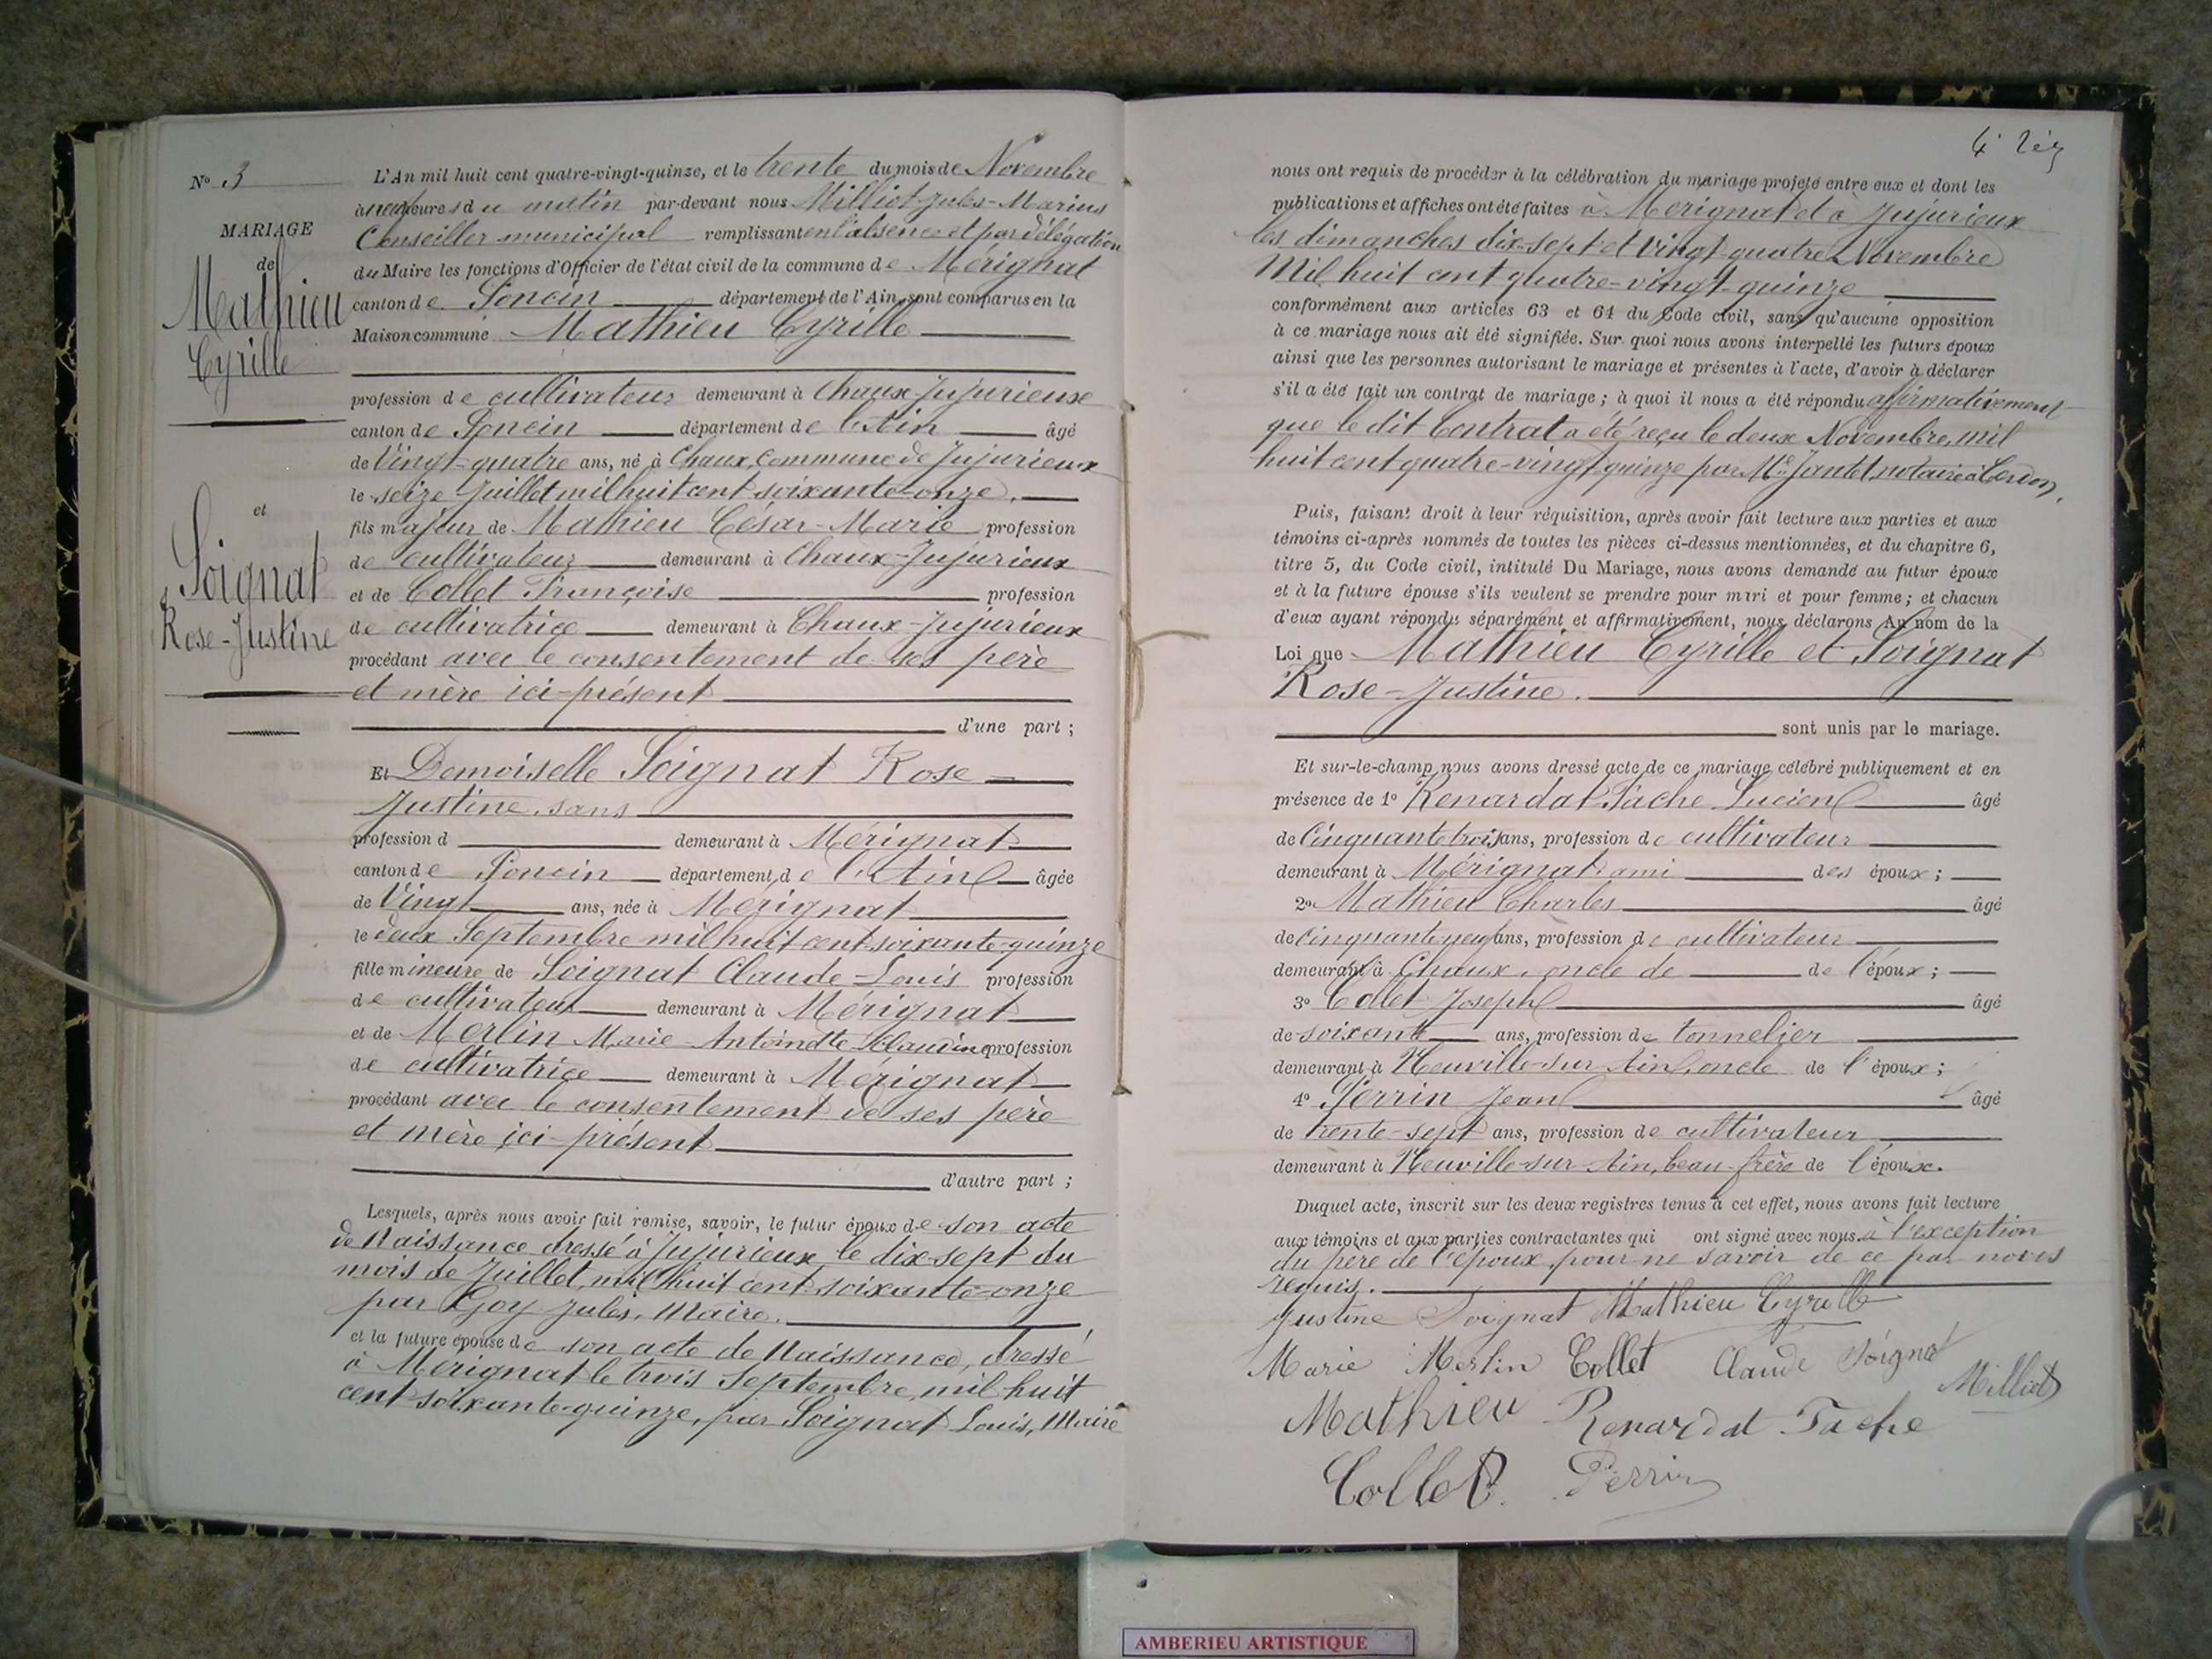 No 3
MARIAGE
de
Mathieu
Cyrille
et
Soignat
Rose-Justine
L'An mil huit cent quatre-vingt-quinze, et le trente du mois de Novembre
à neuf heures du matin par-devant nous Milliot Jules-Marius
Conseiller municipal remplissant en l'absence et par délégation
du Maire les fonctions d'Officier de l'état civil de la commune de Mérignat
canton de Poncin département de l'Ain, sont comparus en la
Maison commune Mathieu Cyrille
profession de cultivateur demeurant à Chaux-Jujurieux
canton de Poncin département de l'Ain âgé
de Vingt-quatre ans, né à Chaux, commune de Jujurieux
le seize Juillet mil huit cent soixante-onze.
fils majeur de Mathieu César-Marie profession
de cultivateur demeurant à Chaux-Jujurieux
et de Collet Françoise profession
de cultivatrice demeurant à Chaux-Jujurieux
procédant avec le consentement de ses père
et mère ici-présent
d'une part ;
Et Demoiselle Soignat Rose
Justine, sans
profession d demeurant à Mérignat
canton de Poncin département de l'Ain âgée
de Vingt ans, née à Mérignat
le deux Septembre mil huit cent soixante-quinze
fille mineure de Soignat Claude-Louis profession
de cultivateur demeurant à Mérignat
et de Merlin Marie-Antoinette Claudine profession
de cultivatrice demeurant à Mérignat
procédant avec le consentement de ses père
et mère ici-présent
d'autre part ;
Lesquels, après nous avoir fait remise, savoir, le futur époux de son acte
de Naissance dressé à Jujurieux le dix-sept du
mois de Juillet mil huit cent soixante-onze
par Goy Jules, Maire.
et la future épouse de son acte de Naissance, dressé
à Mérignat le trois Septembre mil huit
cent soixante-quinze, par Soignat Louis, Maire
nous ont requis de procéder à la célébration du mariage projeté entre eux et dont les
publications et affiches ont été faites à Mérignat et à Jujurieux
les dimanches dix-sept et vingt-quatre Novembre
Mil huit cent quatre-vingt-quinze
conformément aux articles 63 et 64 du Code civil, sans qu'aucune opposition
à ce mariage nous ait été signifiée. Sur quoi nous avons interpellé les futurs époux
ainsi que les personnes autorisant le mariage et présentes à l'acte, d'avoir à déclarer
s'il a été fait un contrat de mariage ; à quoi il nous a été répondu affirmativement
que le dit Contrat a été reçu le deux Novembre, mil
huit cent quatre-vingt quinze par Me Jantet, notaire à Cerdon.
Puis, faisant droit à leur réquisition, après avoir fait lecture aux parties et aux
témoins ci-après nommés de toutes les pièces ci-dessus mentionnées, et du chapitre 6,
titre 5, du Code civil, intitulé Du Mariage, nous avons demandé au futur époux
et à la future épouse s'ils veulent se prendre pour mari et pour femme ; et chacun
d'eux ayant répondu séparément et affirmativement, nous déclarons Au nom de la
Loi que Mathieu Cyrille et Soignat
Rose-Justine.
sont unis par le mariage.
Et sur-le-champ nous avons dressé acte de ce mariage célébré publiquement et en
présence de 1o Renardat Tâche Lucien âgé
de Cinquante trois ans, profession de cultivateur
demeurant à Mérignat ami des époux ;
2o Mathieu Charles âgé
de Cinquante-neuf ans, profession de cultivateur
demeurant à Chaux, oncle de de l'époux ;
3o Collet Joseph âgé
de soixante ans, profession de tonnelier
demeurant à Neuville-sur-Ain, oncle de l'époux ;
4o Perrin Jean âgé
de trente-sept ans, profession de cultivateur
demeurant à Neuville-sur-Ain, beau-frère de l'époux.
Duquel acte, inscrit sur les deux registres tenus à cet effet, nous avons fait lecture
aux témoins et aux parties contractantes qui ont signé avec nous à l'exception
du père de l'époux pour ne savoir de ce par nous
requis.
Justine Soignat Mathieu Cyrille
Marie Merlin Collet Claude Soignat
Milliot
Mathieu Renardat Tache
Collet Perrin
AMBERIEU ARTISTIQUE